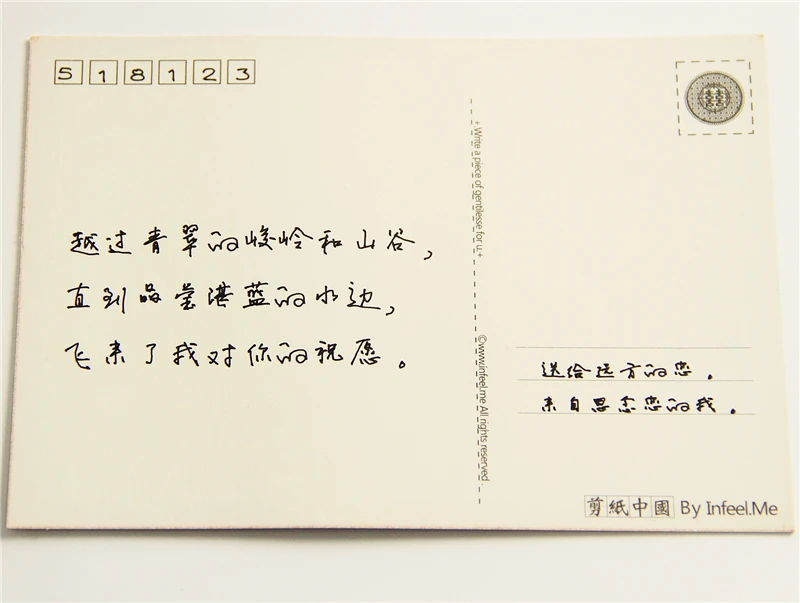 518123
越过青翠的峻岭和山谷，
直到晶莹湛蓝的水边，
飞来了我对你的祝愿。
+ Write a piece of gentilesse for u.+
©www.infeel.me All rights reserved.
送给远方的您．
来自思念您的我．
剪紙中國 By Infeel.Me